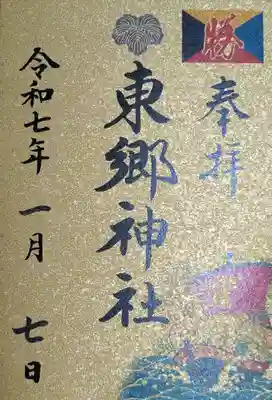 勝
奉拝
東郷神社
令和七年 一月 七日